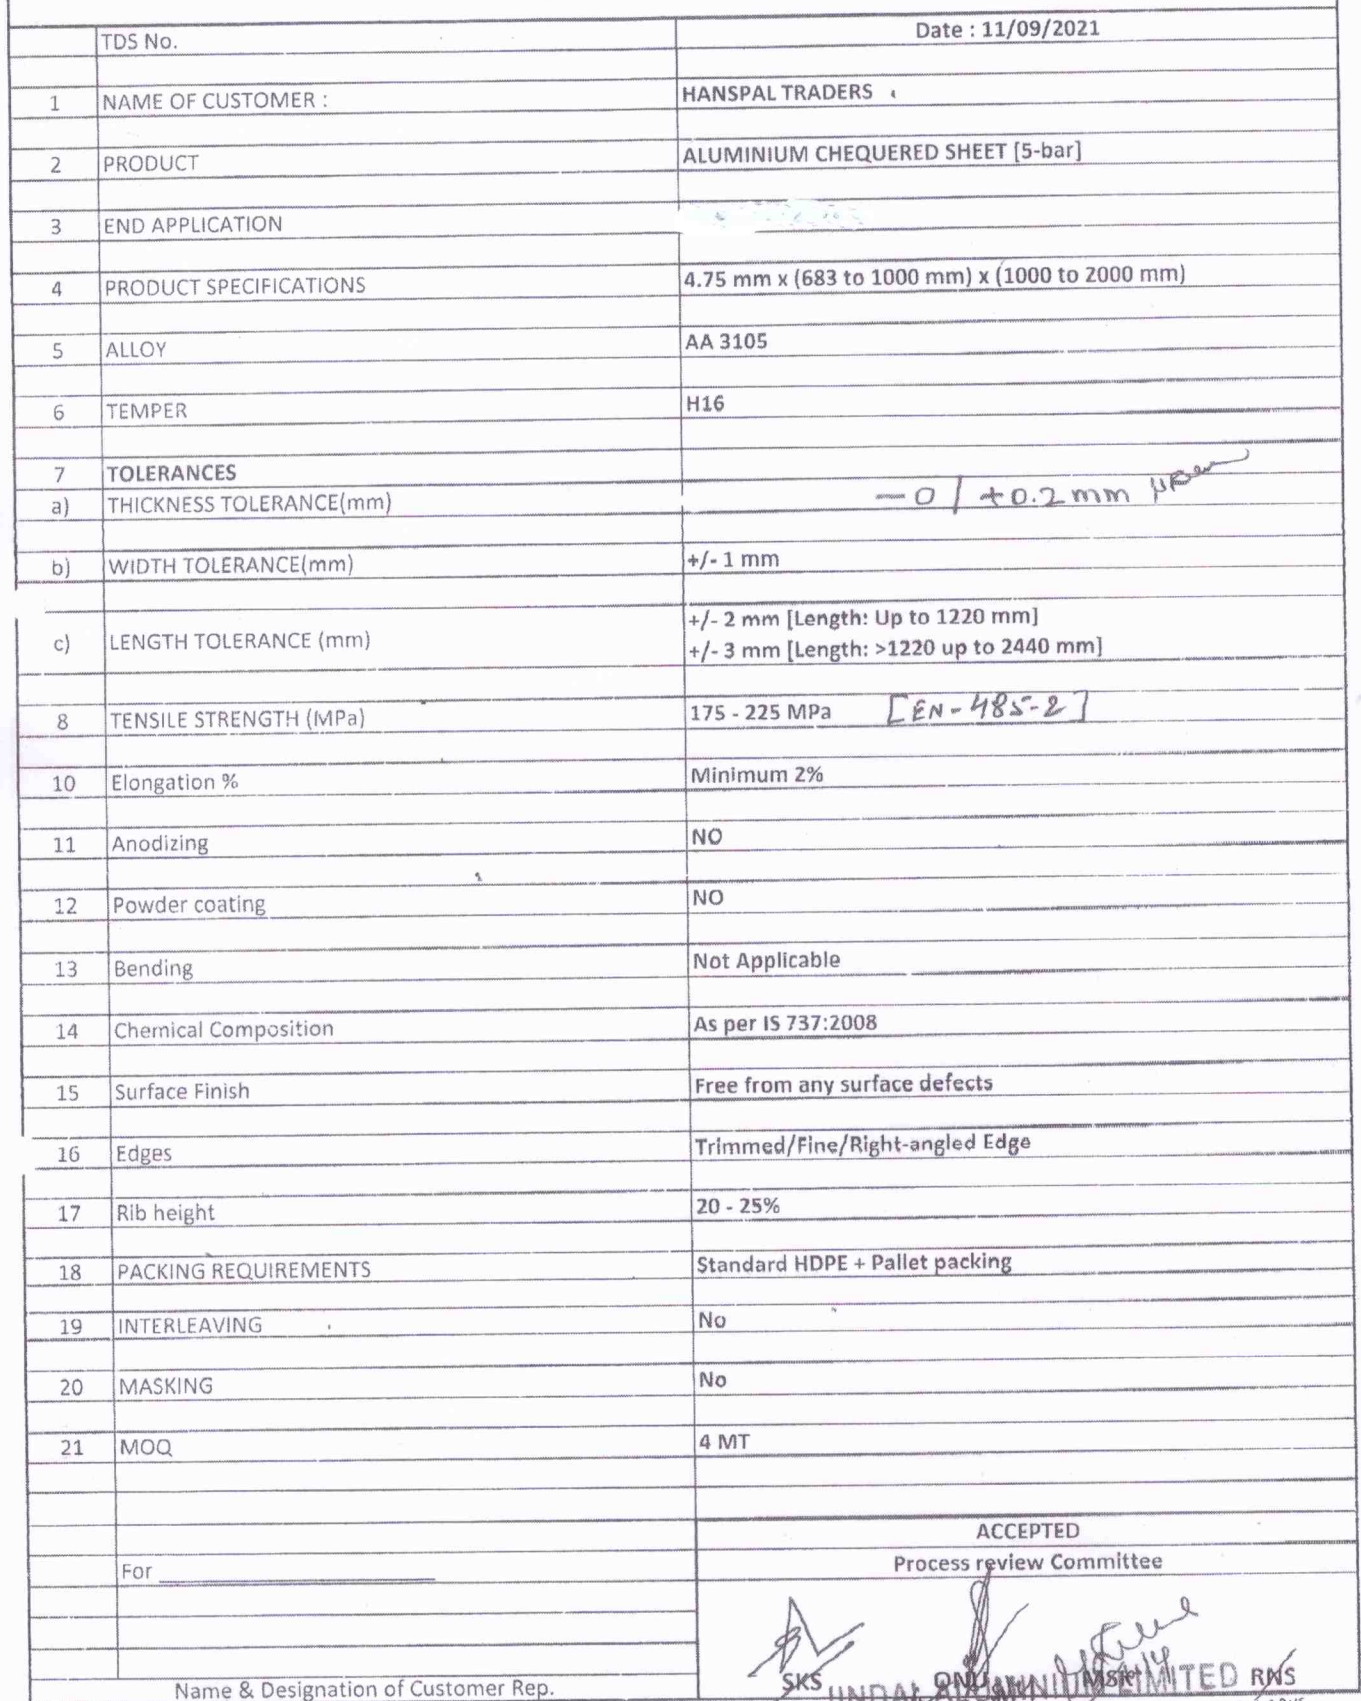 TDS No. Date : 11/09/2021
1 NAME OF CUSTOMER : HANSPAL TRADERS
2 PRODUCT ALUMINIUM CHEQUERED SHEET [5-bar]
3 END APPLICATION
4 PRODUCT SPECIFICATIONS 4.75 mm x (683 to 1000 mm) x (1000 to 2000 mm)
5 ALLOY AA 3105
6 TEMPER H16
7 TOLERANCES
a) THICKNESS TOLERANCE(mm) -0 / +0.2 mm
b) WIDTH TOLERANCE(mm) +/- 1 mm
c) LENGTH TOLERANCE (mm) +/- 2 mm [Length: Up to 1220 mm]
+/- 3 mm [Length: >1220 up to 2440 mm]
8 TENSILE STRENGTH (MPa) 175 - 225 MPa [EN-485-2]
10 Elongation % Minimum 2%
11 Anodizing NO
12 Powder coating NO
13 Bending Not Applicable
14 Chemical Composition As per IS 737:2008
15 Surface Finish Free from any surface defects
16 Edges Trimmed/Fine/Right-angled Edge
17 Rib height 20 - 25%
18 PACKING REQUIREMENTS Standard HDPE + Pallet packing
19 INTERLEAVING No
20 MASKING No
21 MOQ 4 MT
ACCEPTED
For Process review Committee
SKS LIMITED RNS
Name & Designation of Customer Rep.